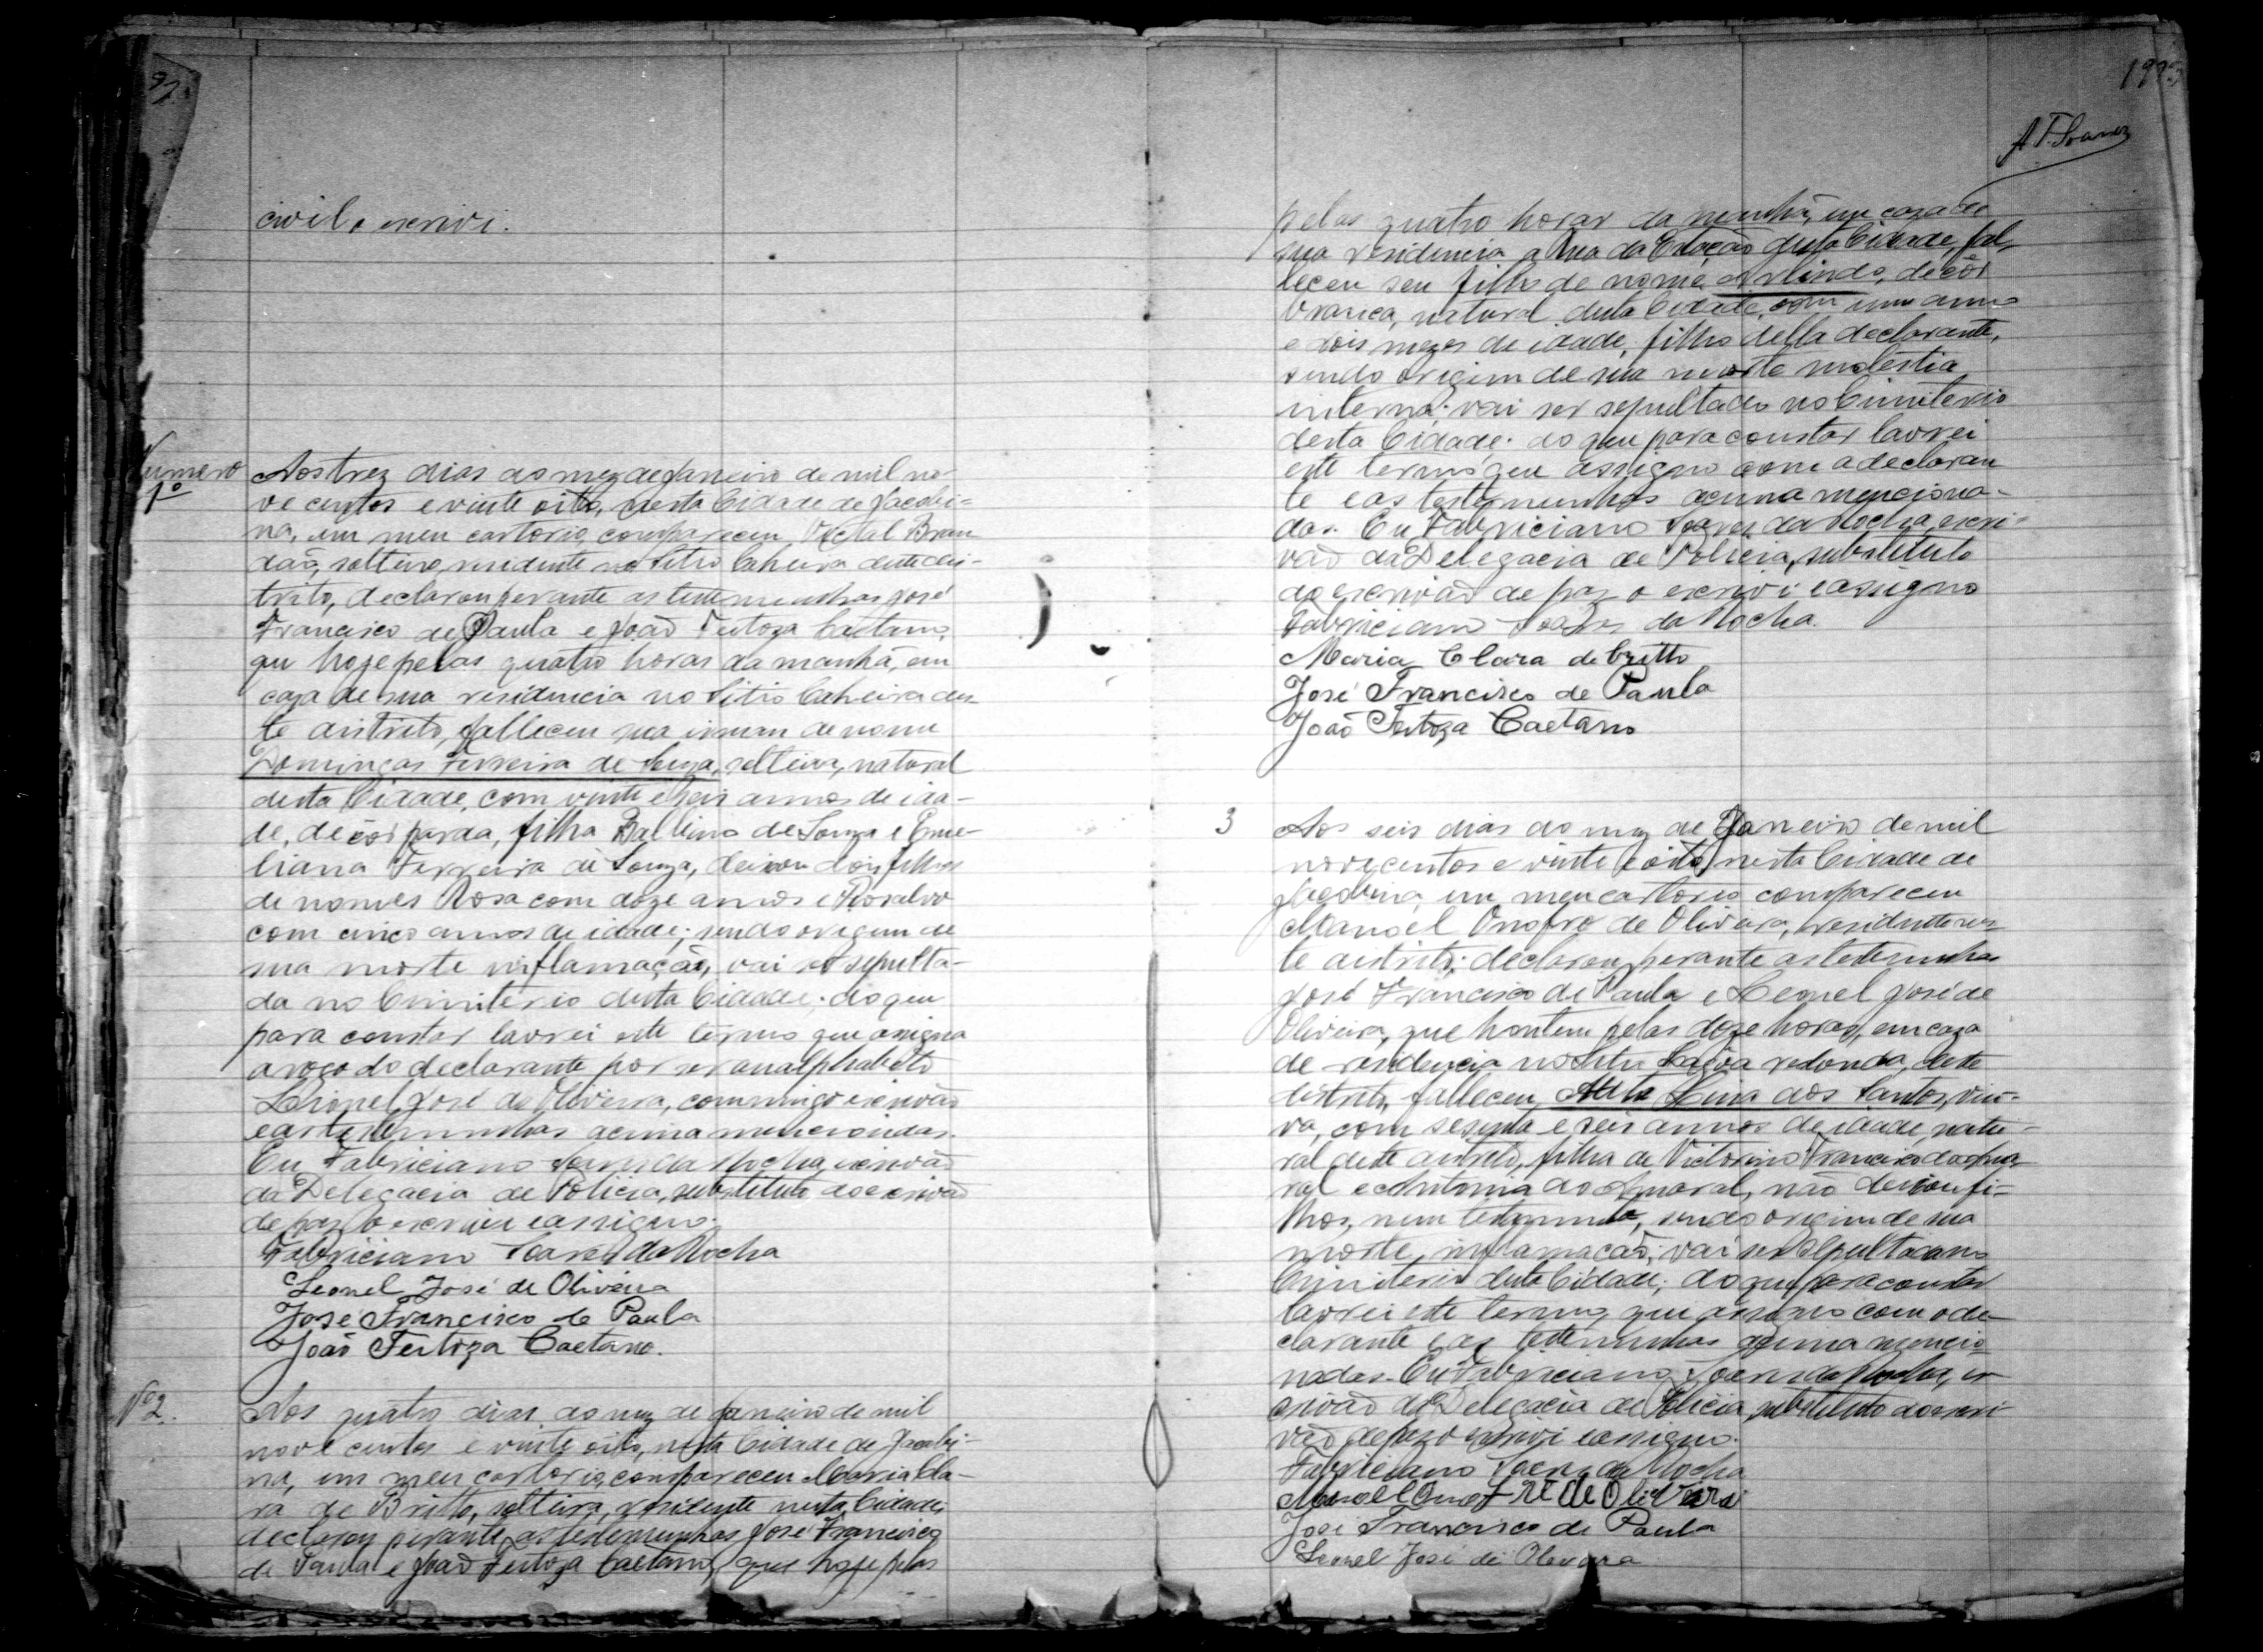 civil o escrivi.
Numero
1º
Aos trez dias do mez de Janeiro de mil no-
ve centos e vinte oito, nesta Cidade de Jacobi-
na, em meu cartorio, compareceu Bran
dão, solteiro, residente no Sitio deste dis-
trito, declarou perante as testemunhas José
Francisco de Paula e João Feitoza Caetano,
que hoje pelas quatro horas da manhã, em
caza de sua residencia no Sitio des-
te distrito, falleceu sua irman de nome
Domingas Ferreira de Souza, solteira, natural
desta Cidade, com vinte e seis annos de ida-
de, de côr parda, filha Balbino de Souza e Eme-
liana Ferreira de Souza, deixou dois filhos
de nomes Rosa com doze annos e
com cinco annos de idade; sendo origem de
sua morte inflamação, vai ser sepulta-
da no Cimiterio desta Cidade; do que
para constar lavrei este termo que assigna
a rogo do declarante por ser analphabeto
Lionel José de Oliveira, commigo escrivão
e as testemunhas acima mencionadas.
Eu Fabriciano Soares da Rocha, escrivão
da Delegacia de Policia, substituto do escrivão
de paz o escrivi e assigno.
Fabriciano Soares da Rocha
Leonel José de Oliveira
José Francisco de Paula
João Feitoza Caetano.
Nº 2.
Aos quatro dias do mez de Janeiro de mil
nove centos e vinte oito, nesta Cidade de Jacobi-
na, em meu cartorio, compareceu Maria Cla-
ra de Britto, solteira, residente nesta Cidade,
declarou perante as testemunhas José Francisco
de Paula e João Feitoza Caetano, que hoje pelas
A. F. Soares
pelas quatro horas da manhã, em caza de
sua residencia a Rua da Estação desta Cidade, fal-
leceu seu filho de nome Arlindo, de côr
branca, natural desta Cidade, com um anno
e dois mezes de idade, filho della declarante,
sendo origem de sua morte molestia
interna; vai ser sepultado no Cimiterio
desta Cidade; do que para constar lavrei
este termo que assigno com a declaran
te e as testemunhas acima menciona-
das. Eu Fabriciano Soares da Rocha, escri-
vão da Delegacia de Policia, substituto
do escrivão de paz o escrivi e assigno
Fabriciano Soares da Rocha.
Maria Clara de Britto
José Francisco de Paula
João Feitoza Caetano
3
Aos seis dias do mez de Janeiro de mil
novecentos e vinte e oito, nesta Cidade de
Jacobina, em meu cartorio compareceu
Manoel Onofro de Oliveira, residente nes
te distrito; declarou perante as testemunhas
José Francisco de Paula e Leonel José de
Oliveira, que hontem pelas doze horas, em caza
de residencia no Sitio Lagôa redonda, deste
distrito, falleceu dos Santos, viu-
va, com sesenta e seis annos de idade, natu-
ral deste distrito, filha de Victorino Francisco do Ama
ral e Antonia do Amaral, não deixou fi-
lhos, nem testamento, sendo origem de sua
morte, inflamação; vai ser sepultada no
Cimiterio desta Cidade; do que para constar
lavrei este termo, que assigno com o de-
clarante e as testemunhas acima mencio
nadas. Eu Fabriciano Soares da Rocha, es
crivão da Delegacia de Policia, substituto do escri
vão de paz o escrivi e assigno.
Fabriciano Soares da Rocha
Manoel Onofre de Oliveira
José Francisco de Paula
Leonel José de Oliveira